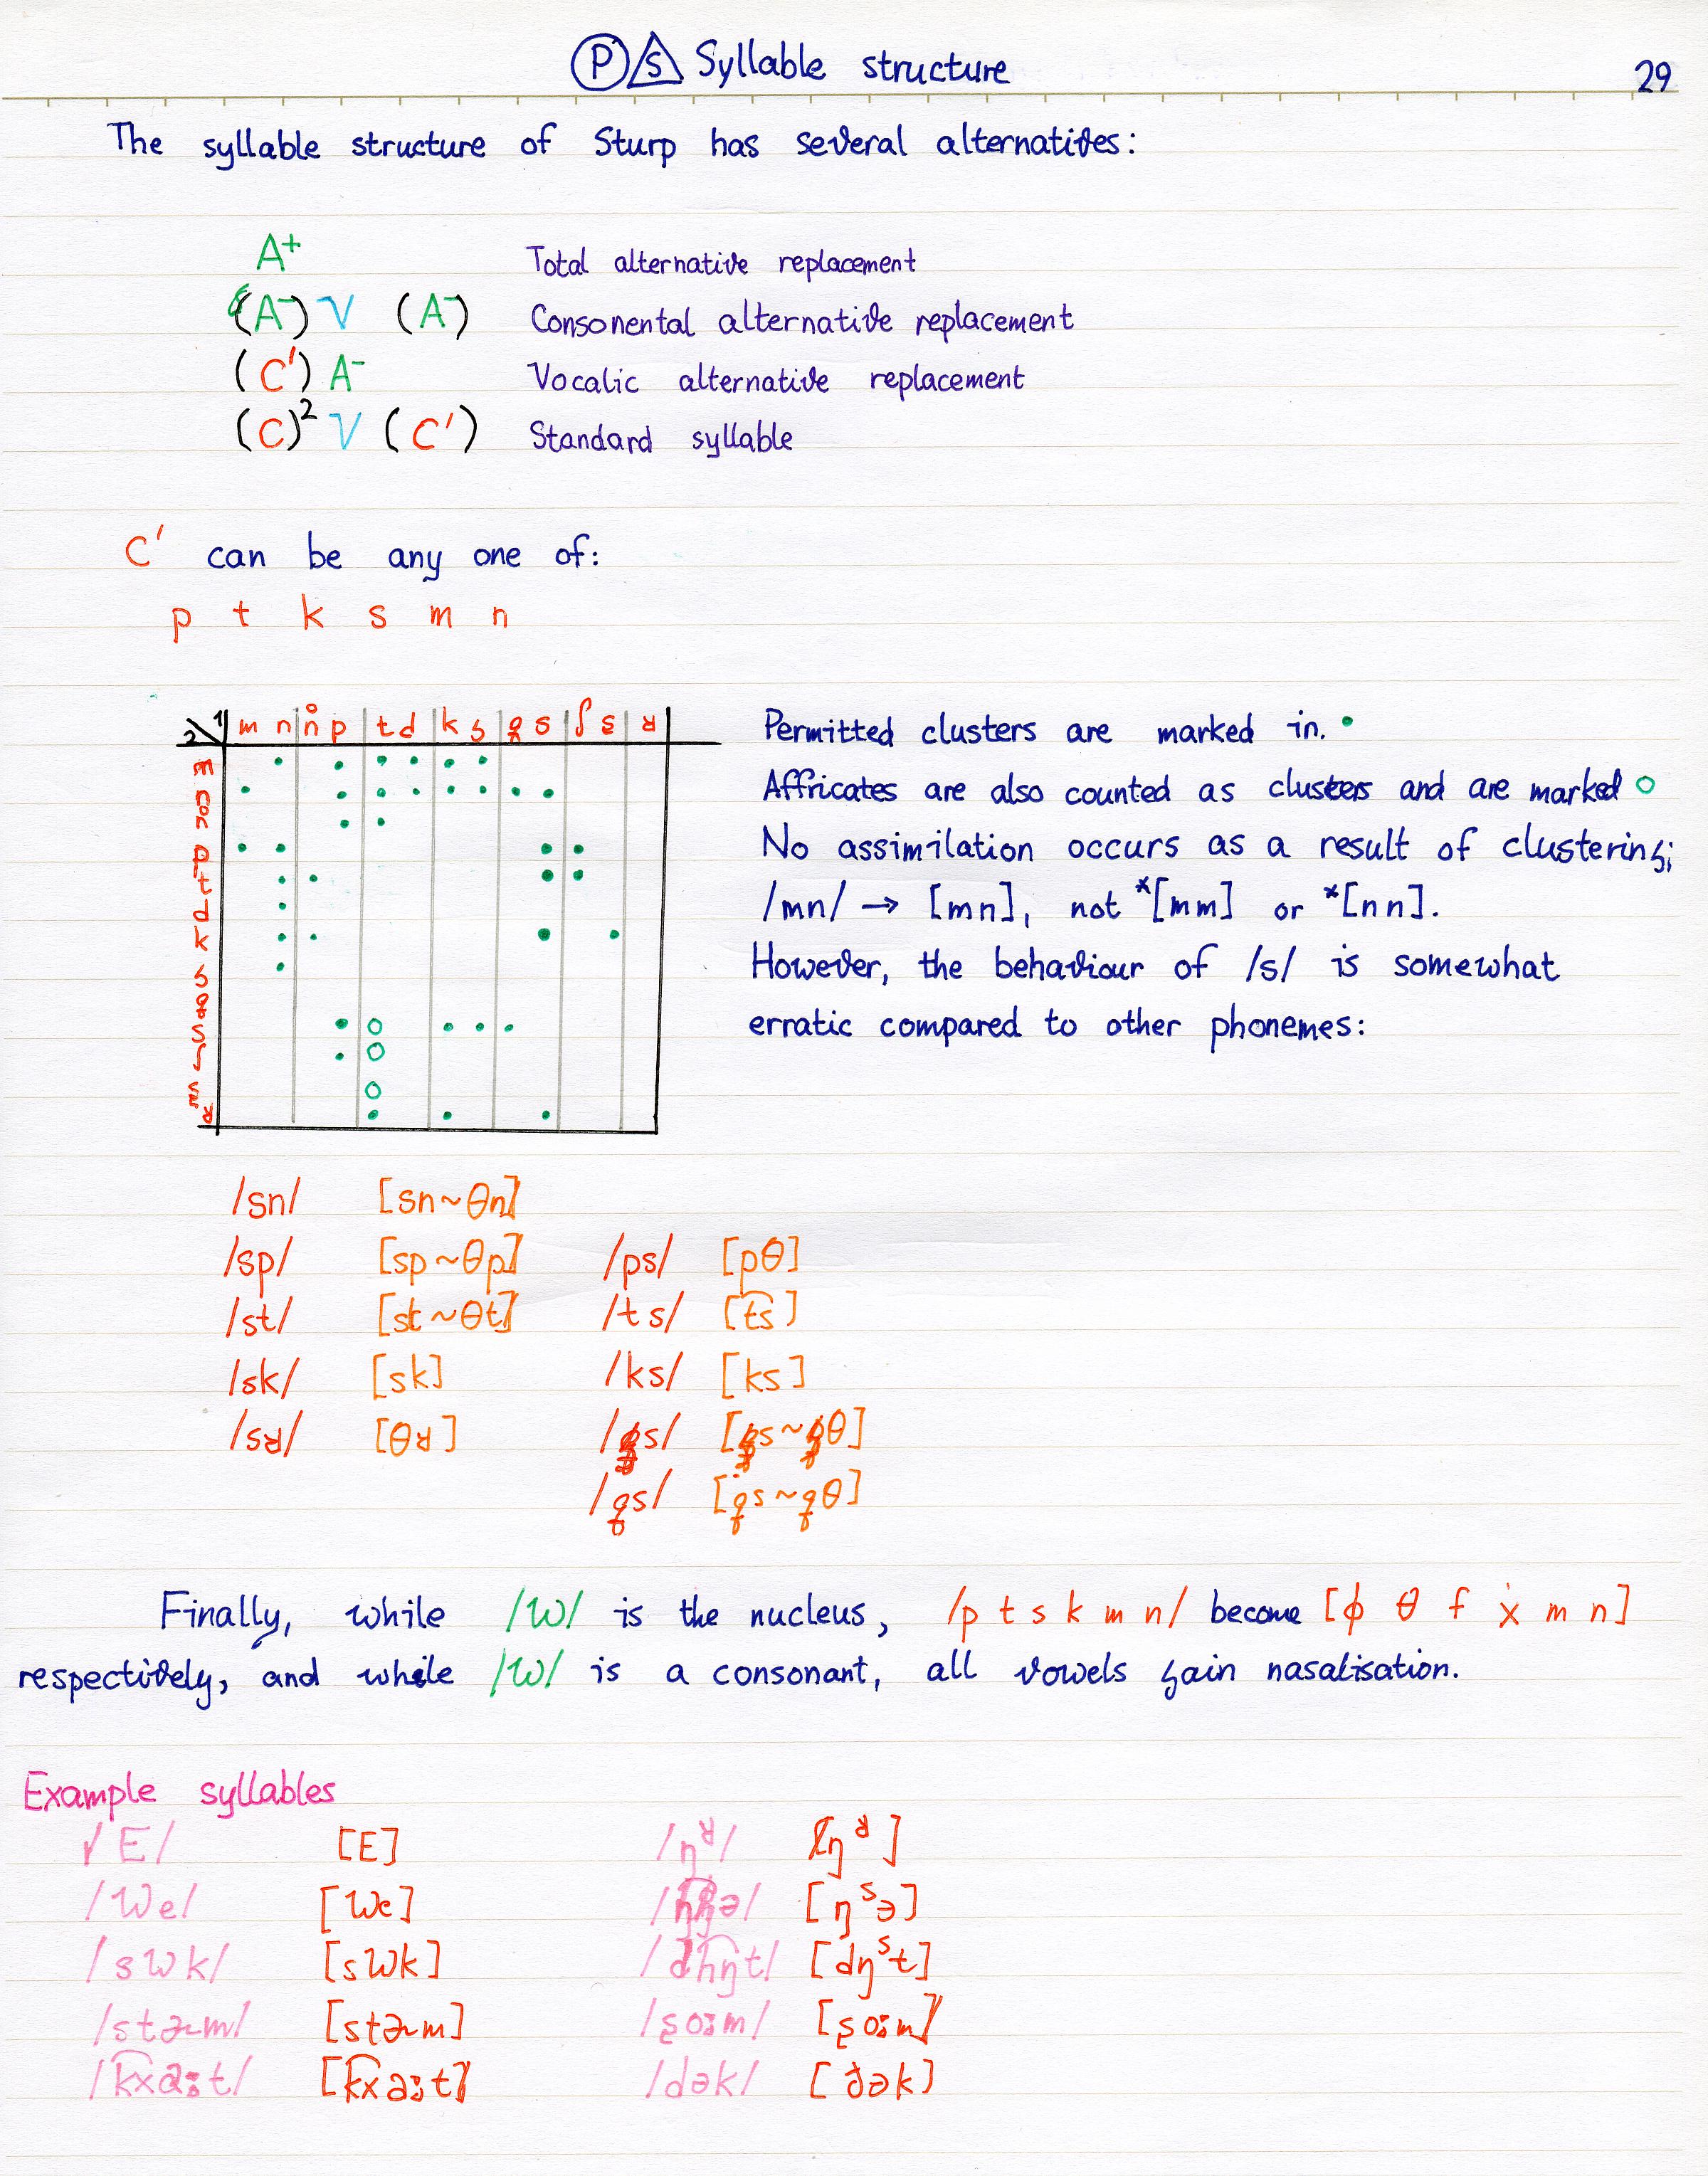 P S Syllable structure 29
The syllable structure of Sturp has several alternatives:
A⁺ Total alternative replacement
(A⁻) V (A⁻) Consonental alternative replacement
(C') A⁻ Vocalic alternative replacement
(C)² V (C') Standard syllable
C' can be any one of:
p t k s m n
Permitted clusters are marked in. •
Affricates are also counted as clusters and are marked ○
No assimilation occurs as a result of clustering;
/mn/ → [mn], not *[mm] or *[nn].
However, the behaviour of /s/ is somewhat
erratic compared to other phonemes:
/sn/ [sn~θn]
/sp/ [sp~θp] /ps/ [pθ]
/st/ [st~θt] /ts/ [t͡s]
/sk/ [sk] /ks/ [ks]
/sʁ/ [θʁ]
Finally, while /W/ is the nucleus, /p t s k m n/ become [ɸ θ f ẋ m n]
respectively, and while /W/ is a consonant, all vowels gain nasalisation.
Example syllables
/E/ [E] /ŋʁ/ [ŋʁ]
/We/ [We] [ŋˢə]
/sWk/ [sWk] [dŋˢt]
/stɚm/ [stɚm] /ʂoːm/ [ʂoːm]
/k͡xaːt/ [k͡xaːt] /dək/ [ðək]